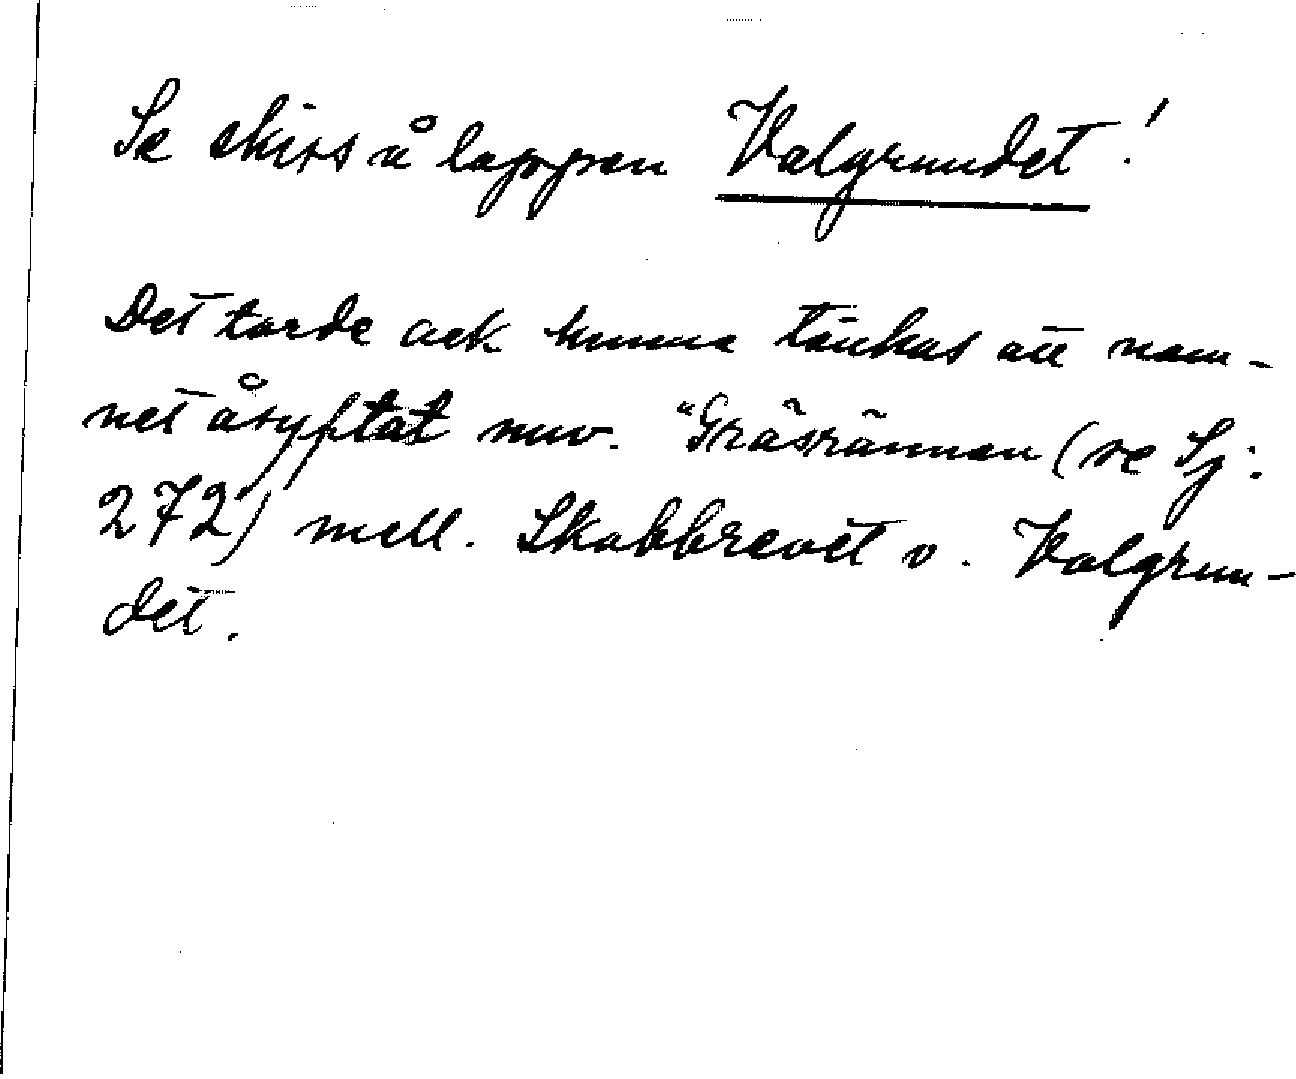 Se skiss å lappen Valgrundet!
Det torde ock kunna tänkas att nam-
net åsyftat nuv. "Gräsrännan (se Sj:
272) mell. Skabbrevet o. Valgrun-
det.